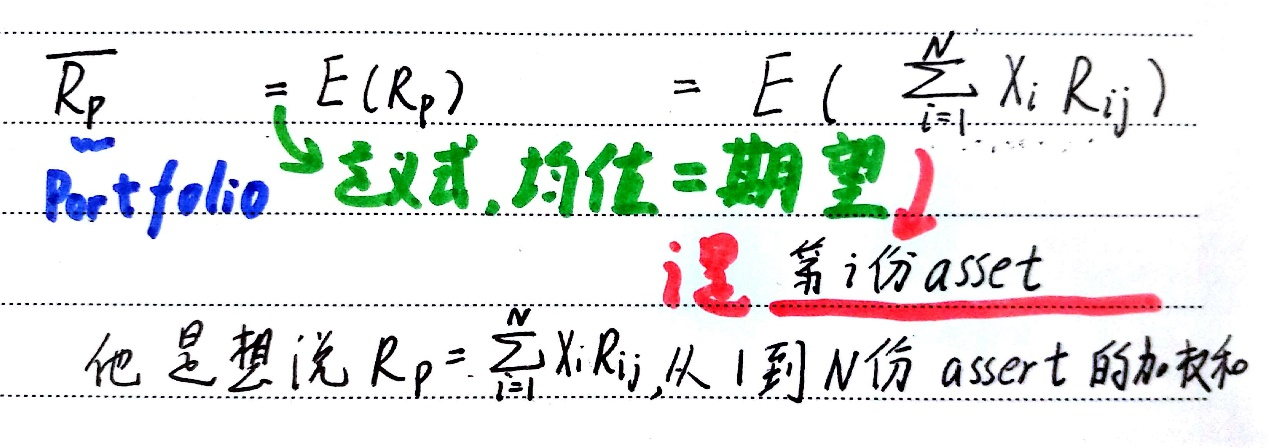 R̄_p = E(R_p) = E( ∑_{i=1}^{N} X_i R_{ij} )
Portfolio 定义式,均值=期望
i是 第i份asset
他是想说 R_p = ∑_{i=1}^{N} X_i R_{ij},从1到N份 assert 的加权和